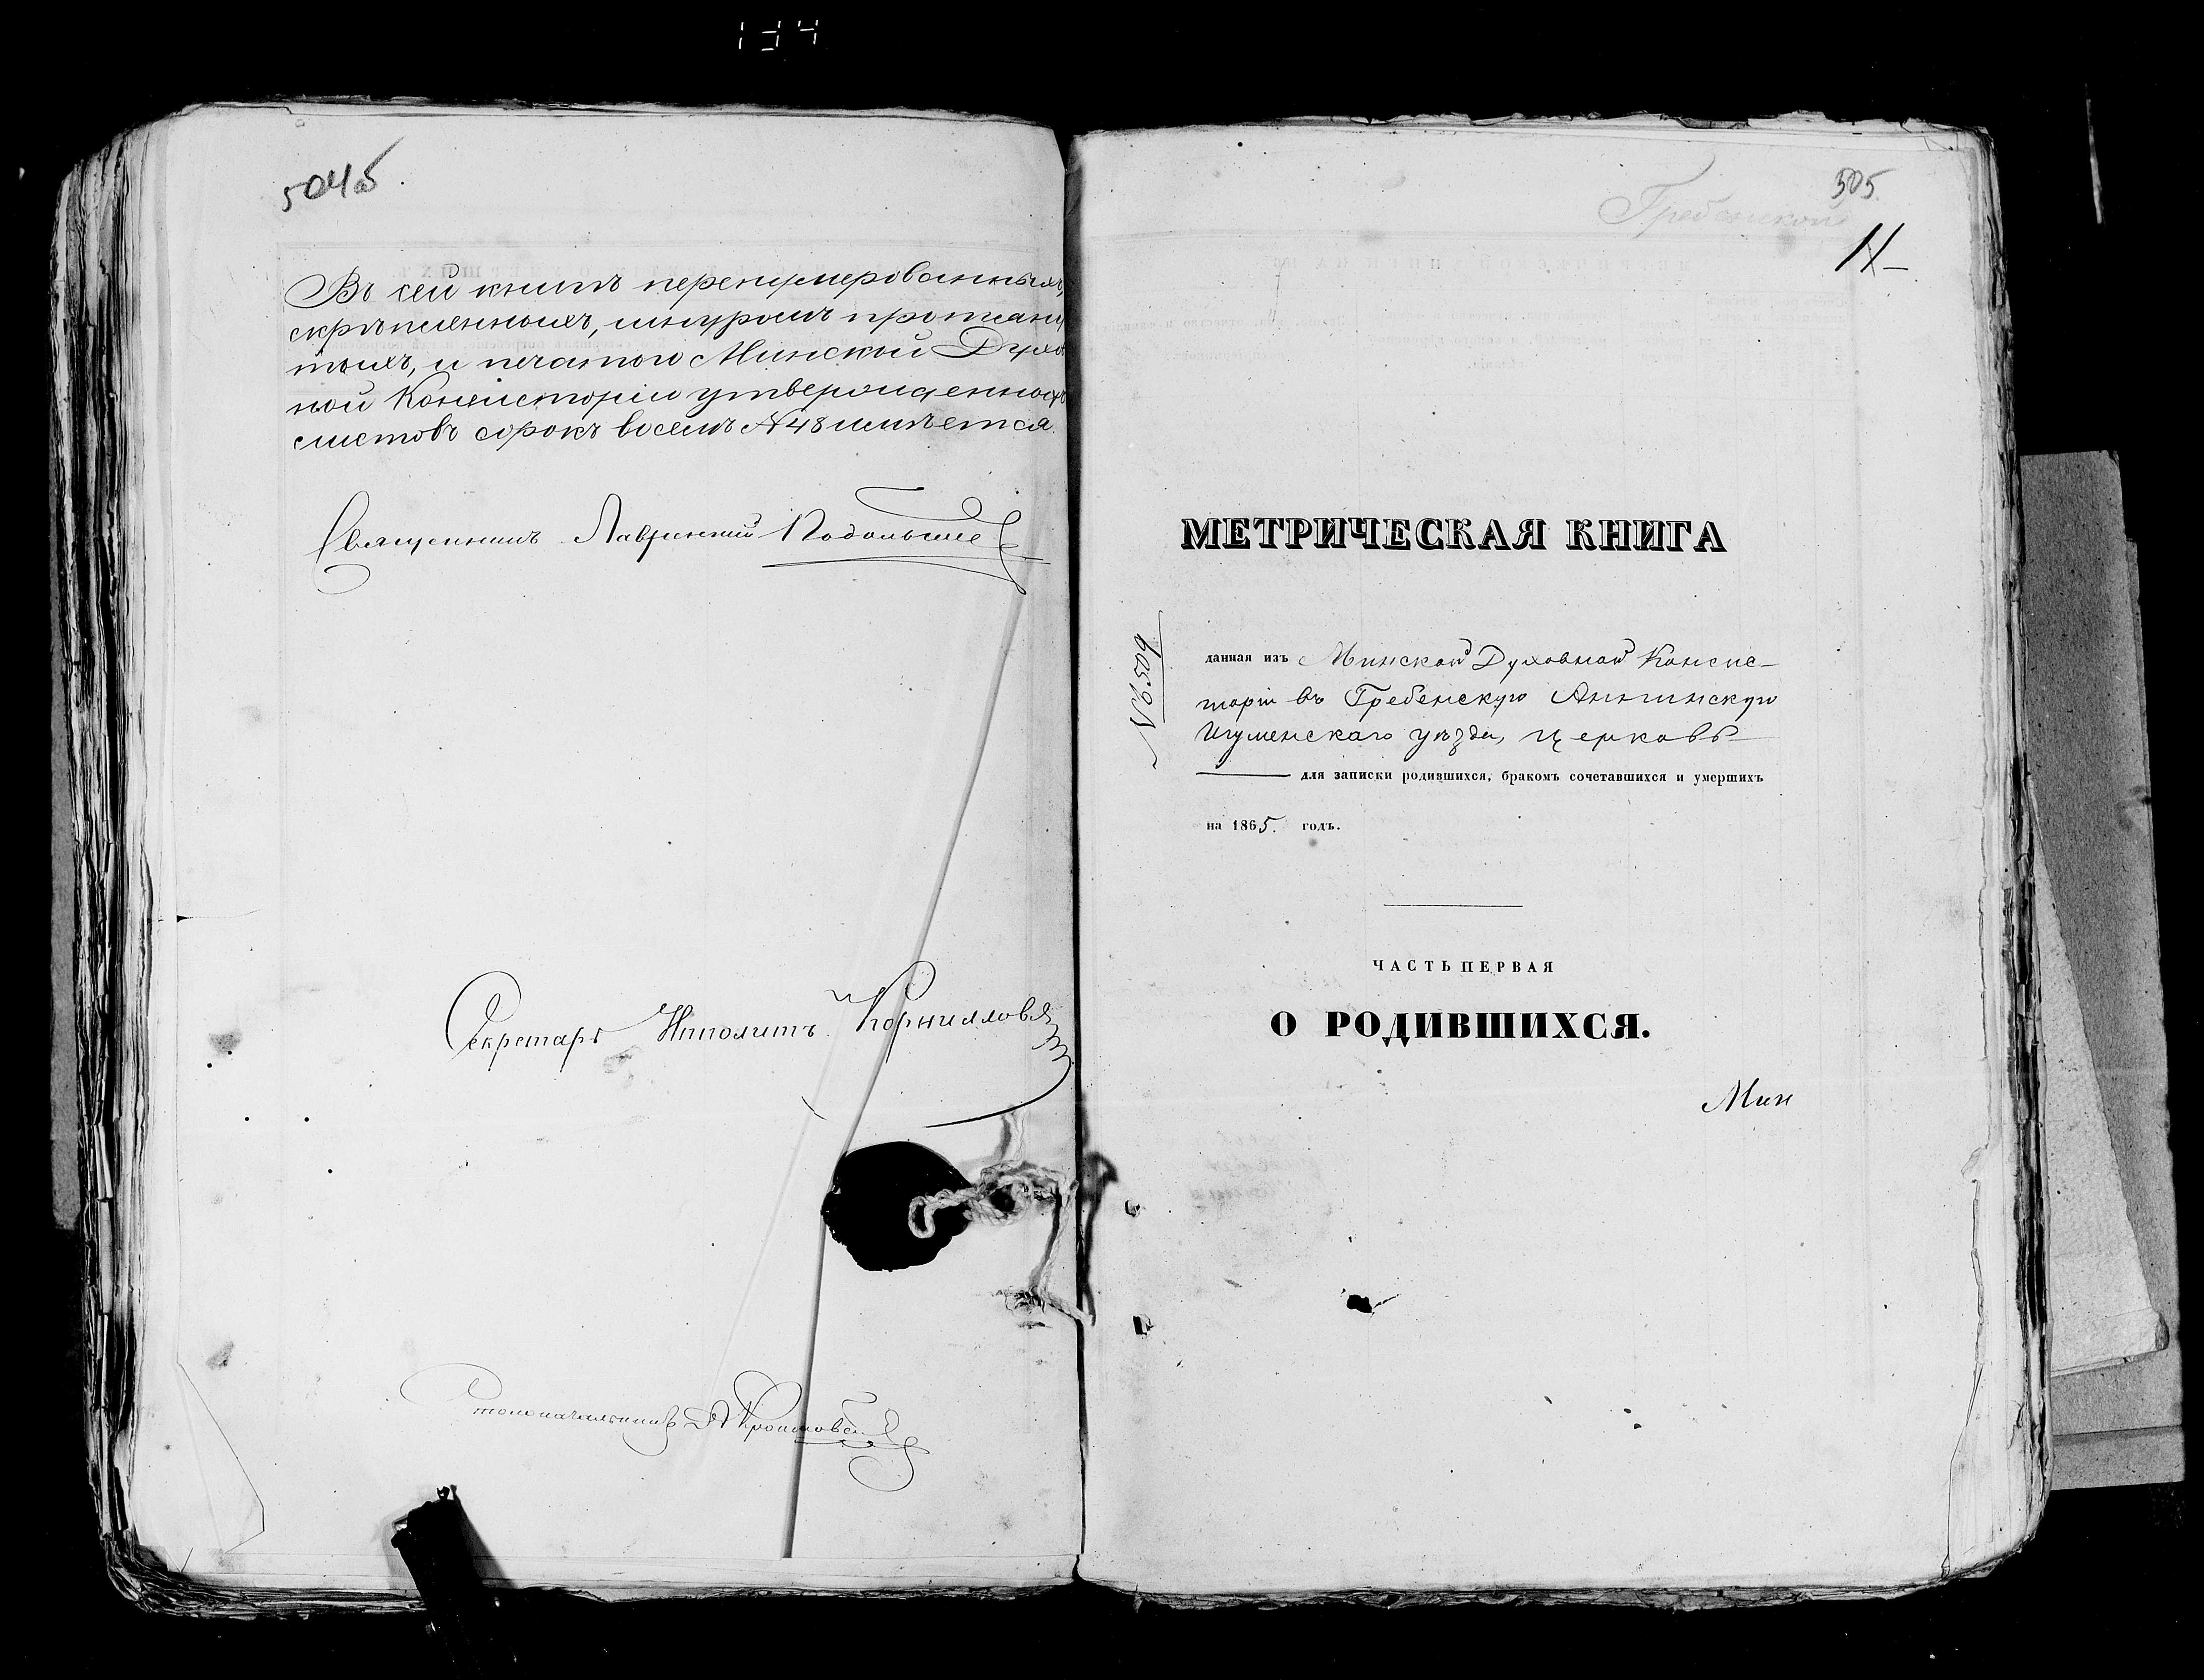 134
504б
Въ сей книгѣ перенумерованныхъ,
скрѣпленныхъ, шнуромъ протяну
тыхъ, и печатью Минской Духо
ной Консисторіи утвержденныхъ
листовъ сорокъ восемь №48 имѣется.
Священникъ Лаврентій
Секретарь Ипполитъ Корниловъ
Столоначальникъ
505.
Гребенской
11
МЕТРИЧЕСКАЯ КНИГА
№ 6.509
данная изъ Минской Духовной Консис-
торіи въ Гребенскую Аннинскую
Игуменскаго уѣзда, церковь
для записки родившихся, бракомъ сочетавшихся и умершихъ
на 1865. годъ.
ЧАСТЬ ПЕРВАЯ
О РОДИВШИХСЯ.
Мин